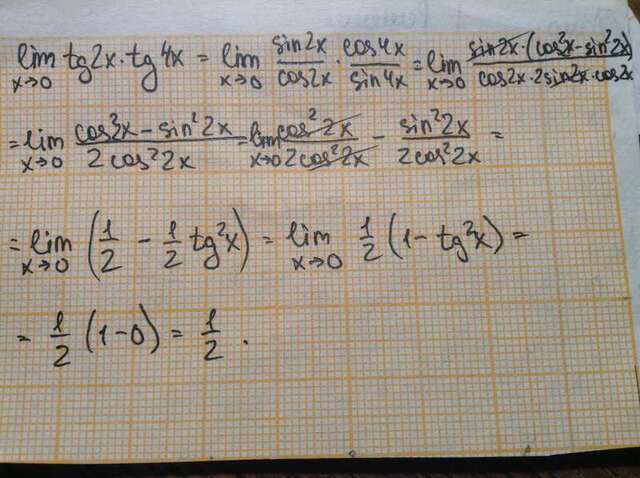 lim x→0 tg2x · tg4x = lim x→0 sin2x/cos2x · cos4x/sin4x = lim x→0 sin2x · (cos²x - sin²2x)/cos2x · 2sin2x · cos2x
= lim x→0 cos²x - sin²2x/2cos²2x = lim x→0 cos²2x/2cos²2x - sin²2x/2cos²2x =
= lim x→0 (1/2 - 1/2 tg²x) = lim x→0 1/2 (1 - tg²x) =
= 1/2 (1-0) = 1/2 .